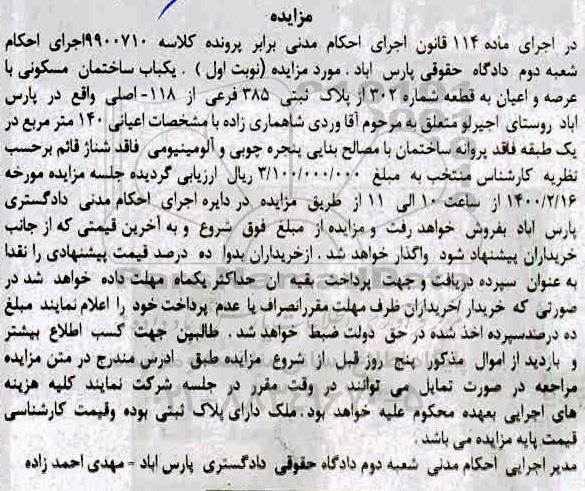 مزایده
در اجرای ماده ۱۱۴ قانون اجرای احکام مدنی برابر پرونده کلاسه ۹۹۰۰۷۱۰اجرای احکام
شعبه دوم دادگاه حقوقی پارس اباد . مورد مزایده (نوبت اول ) . یکباب ساختمان مسکونی با
عرصه و اعیان به قطعه شماره ۳۰۲ از پلاک ثبتی ۳۸۵ فرعی از ۱۱۸- اصلی واقع در پارس
اباد روستای اجیرلو متعلق به مرحوم آقا وردی شاهماری زاده با مشخصات اعیانی ۱۴۰ متر مربع در
یک طبقه فاقد پروانه ساختمان با مصالح بنایی پنجره چوبی و آلومینیومی فاقد شناژ قائم برحسب
نظریه کارشناس منتخب به مبلغ ۳/۱۰۰/۰۰۰/۰۰۰ ریال ارزیابی گردیده جلسه مزایده مورخه
۱۴۰۰/۲/۱۶ از ساعت ۱۰ الی ۱۱ از طریق مزایده در دایره اجرای احکام مدنی دادگستری
پارس اباد بفروش خواهد رفت و مزایده از مبلغ فوق شروع و به آخرین قیمتی که از جانب
خریداران پیشنهاد شود واگذار خواهد شد . ازخریداران بدوا ده درصد قیمت پیشنهادی را نقدا
به عنوان سپرده دریافت و جهت پرداخت بقیه ان حداکثر یکماه مهلت داده خواهد شد در
صورتی که خریدار /خریداران ظرف مهلت مقررانصراف یا عدم پرداخت خود را اعلام نمایند مبلغ
ده درصدسپرده اخذ شده در حق دولت ضبط خواهد شد . طالبین جهت کسب اطلاع بیشتر
و بازدید از اموال مذکور پنج روز قبل از شروع مزایده طبق ادرس مندرج در متن مزایده
مراجعه در صورت تمایل می توانند در وقت مقرر در جلسه شرکت نمایند کلیه هزینه
های اجرایی بعهده محکوم علیه خواهد بود . ملک دارای پلاک ثبتی بوده وقیمت کارشناسی
قیمت پایه مزایده می باشد .
مدیر اجرایی احکام مدنی شعبه دوم دادگاه حقوقی دادگستری پارس اباد - مهدی احمد زاده